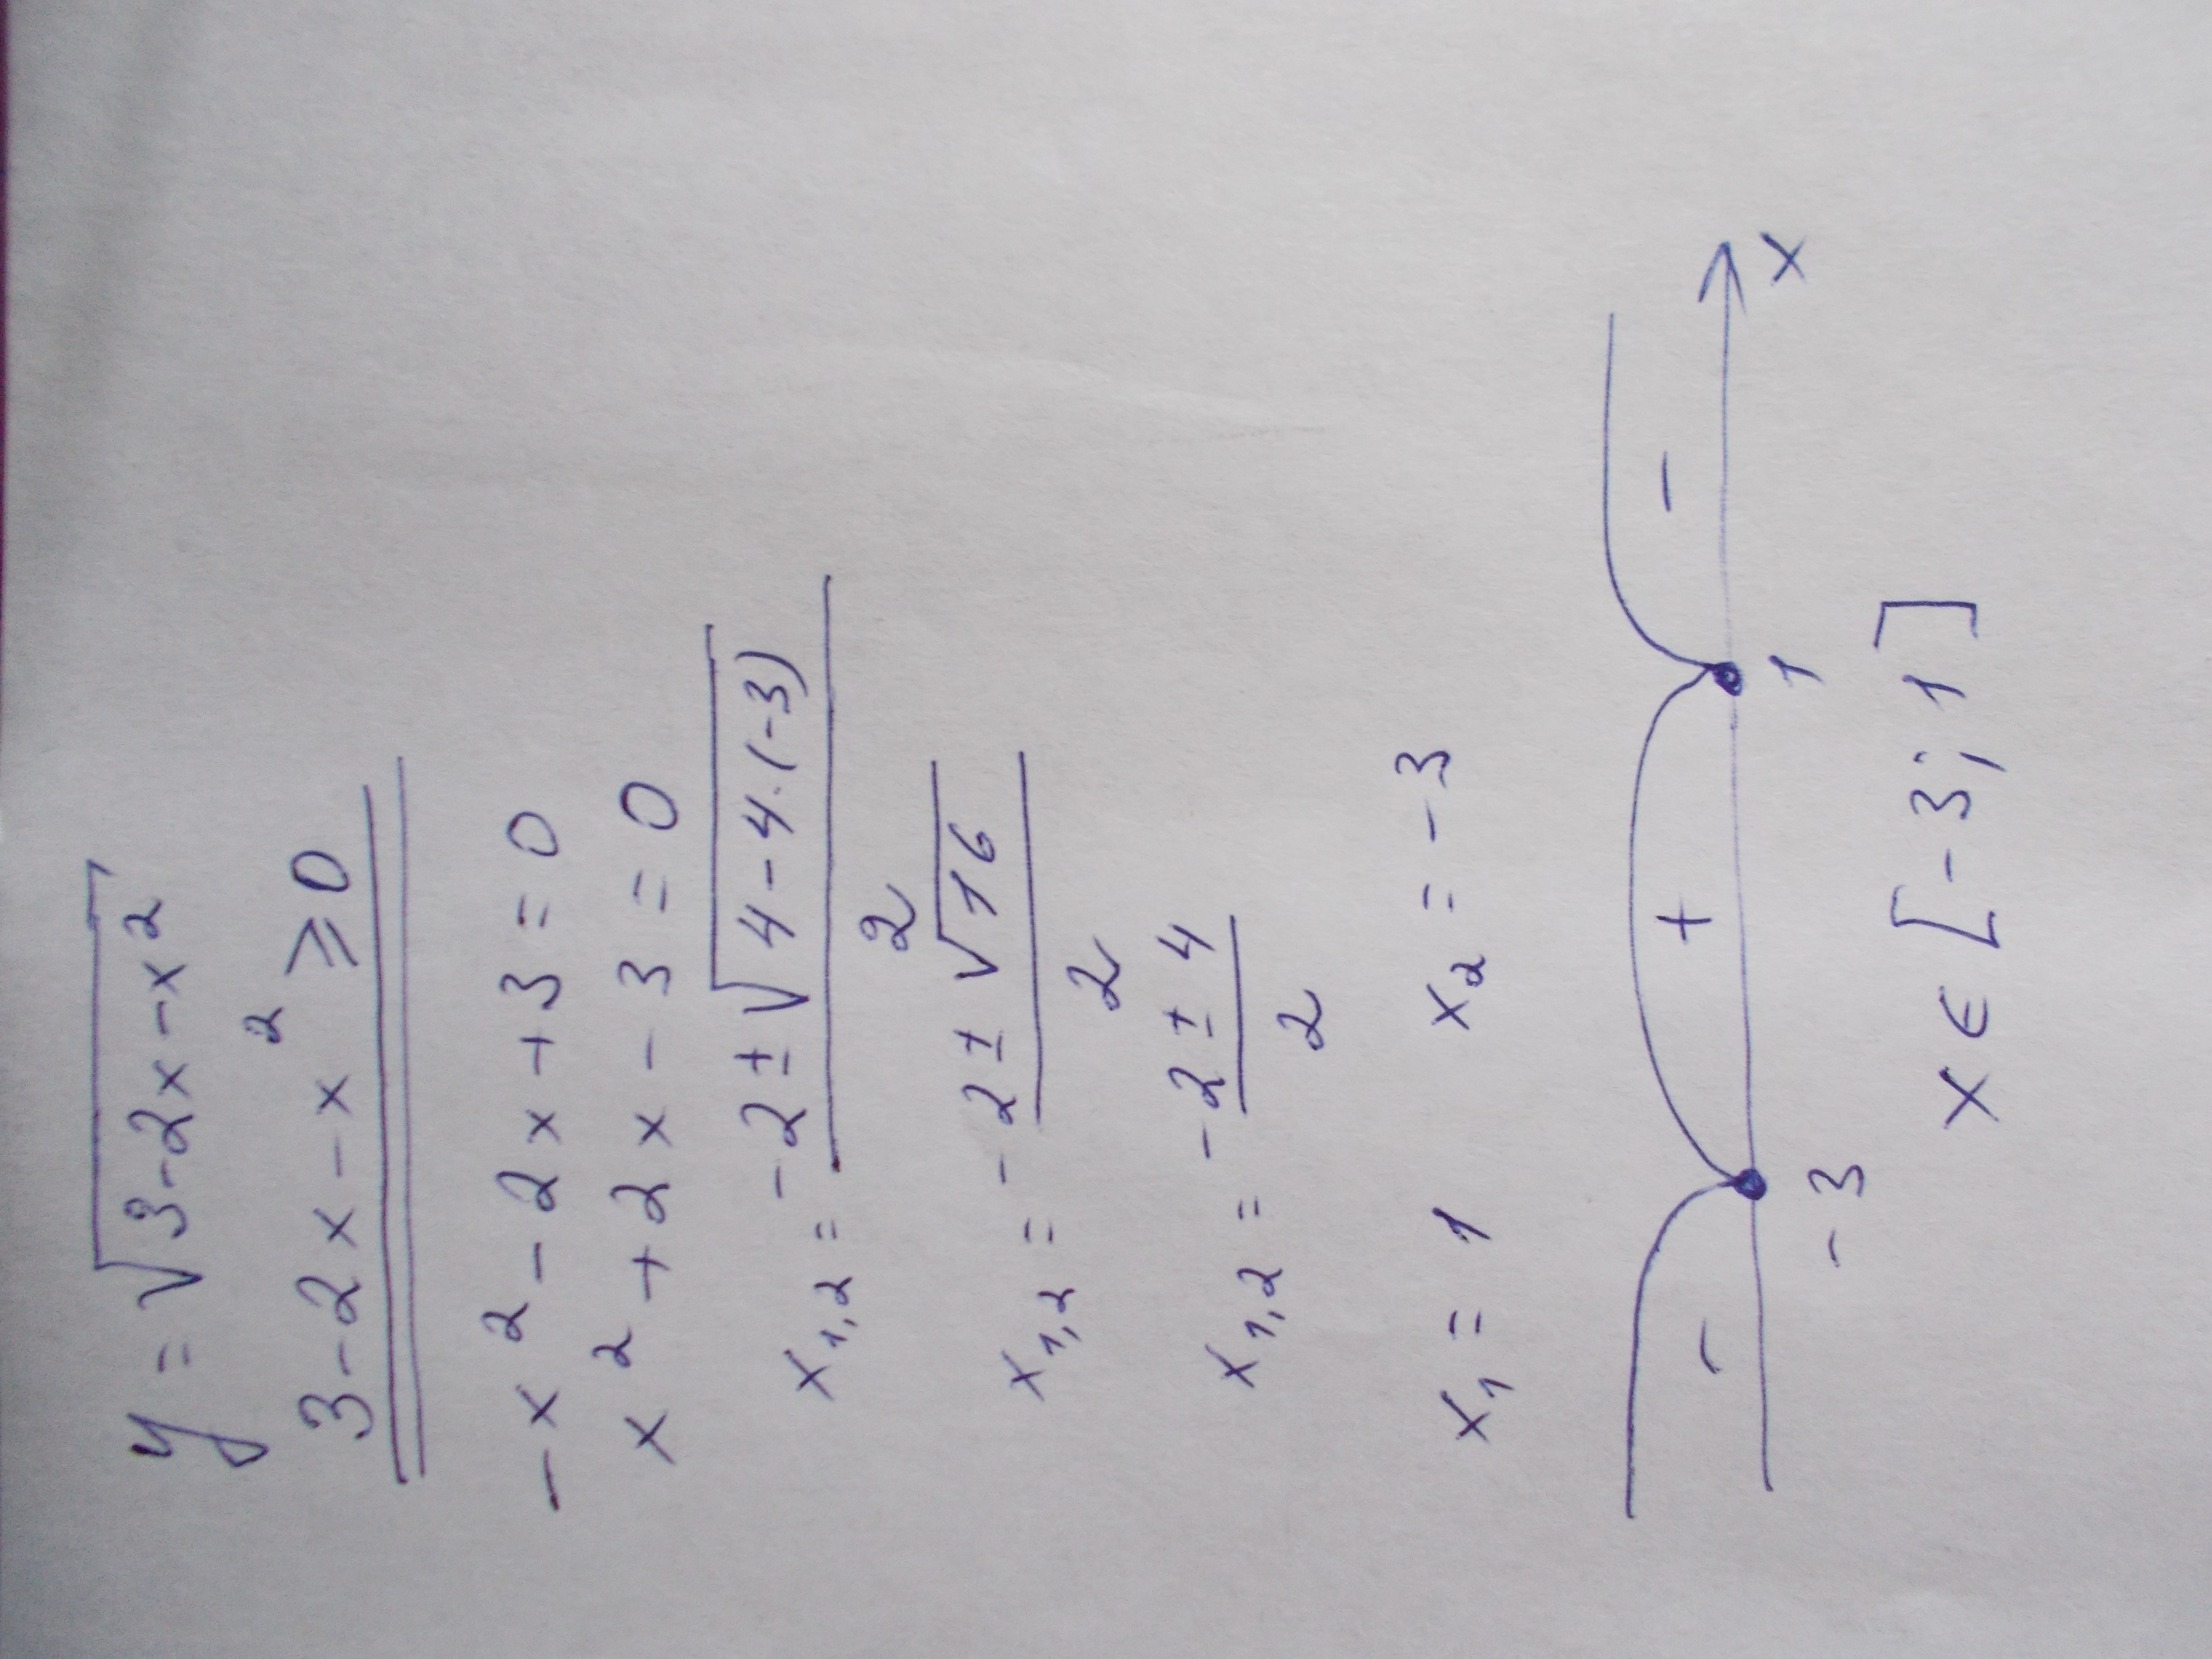 y = √3-2x-x²
3-2x-x² ≥ 0
-x² - 2x + 3 = 0
x² + 2x - 3 = 0
x₁,₂ = -2 ± √4-4·(-3) / 2
x₁,₂ = -2 ± √16 / 2
x₁,₂ = -2 ± 4 / 2
x₁ = 1 x₂ = -3
- + -
-3 1 x
x ∈ [-3; 1]